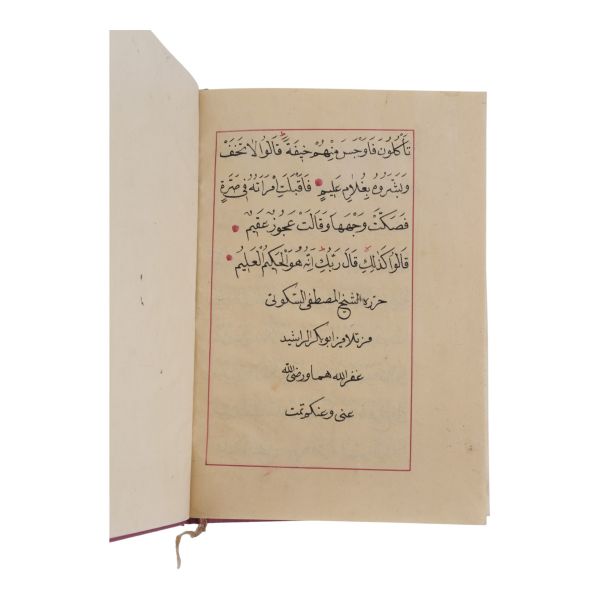 تَأْكُلُونَ فَاَوْجَسَ مِنْهُمْ خِيفَةً قَالُوا لَا تَخَفْ
وَبَشَّرُوهُ بِغُلَامٍ عَلِيمٍ فَاَقْبَلَتِ امْرَاَتُهُ فِى صَرَّةٍ
فَصَكَّتْ وَجْهَهَا وَقَالَتْ عَجُوزٌ عَقِيمٌ
قَالُوا كَذٰلِكِ قَالَ رَبُّكِ اِنَّهُ هُوَ الْحَكِيمُ الْعَلِيمُ
حرّره الشيخ المصطفى
من تلاميذ ابوبكر الراشيد
غفر الله هما ورضى الله
عنى وعنكم تمت